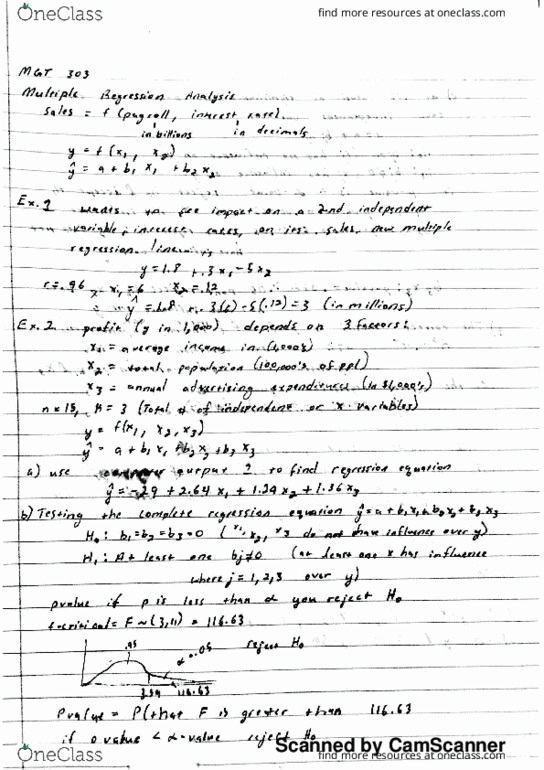 OneClass
find more resources at oneclass.com
MGT 303
Multiple Regression Analysis
Sales = f (payroll, interest rate)
in billions in decimals
y = f (x₁, x₂)
ŷ = a + b₁ x₁ + b₂ x₂
Ex. 1 wants to see impact on a 2nd independent
variable, interest rates, on its sales, new multiple
regression line
y = 1.8 + .3 x₁ - 5 x₂
r = .96 x₁ = 6 x₂ = .12
ŷ = 1.8 + .3(6) - 5(.12) = 3 (in millions)
Ex. 2 profit (y in 1,000) depends on 3 factors:
x₁ = average income in (1,000's)
x₂ = total population (100,000's of ppl)
x₃ = annual advertising expenditures (in $1,000's)
n = 15, K = 3 (Total # of independent or x variables)
y = f(x₁, x₂, x₃)
ŷ = a + b₁ x₁ + b₂ x₂ + b₃ x₃
a) use computer output 2 to find regression equation
ŷ = -29 + 2.64 x₁ + 1.24 x₂ + 1.36 x₃
b) Testing the complete regression equation ŷ = a + b₁ x₁ + b₂ x₂ + b₃ x₃
H₀: b₁ = b₂ = b₃ = 0 (x₁, x₂, x₃ do not have influence over y)
H₁: At least one bj ≠ 0 (at least one x has influence
where j = 1, 2, 3 over y)
pvalue if p is less than α you reject H₀
f-critical = F ~ (3, 11) = 116.63
.95 α = .05 reject H₀
3.59 116.63
Pvalue = P(that F is greater than 116.63
if p value < α-value reject H₀
Scanned by CamScanner
OneClass
find more resources at oneclass.com